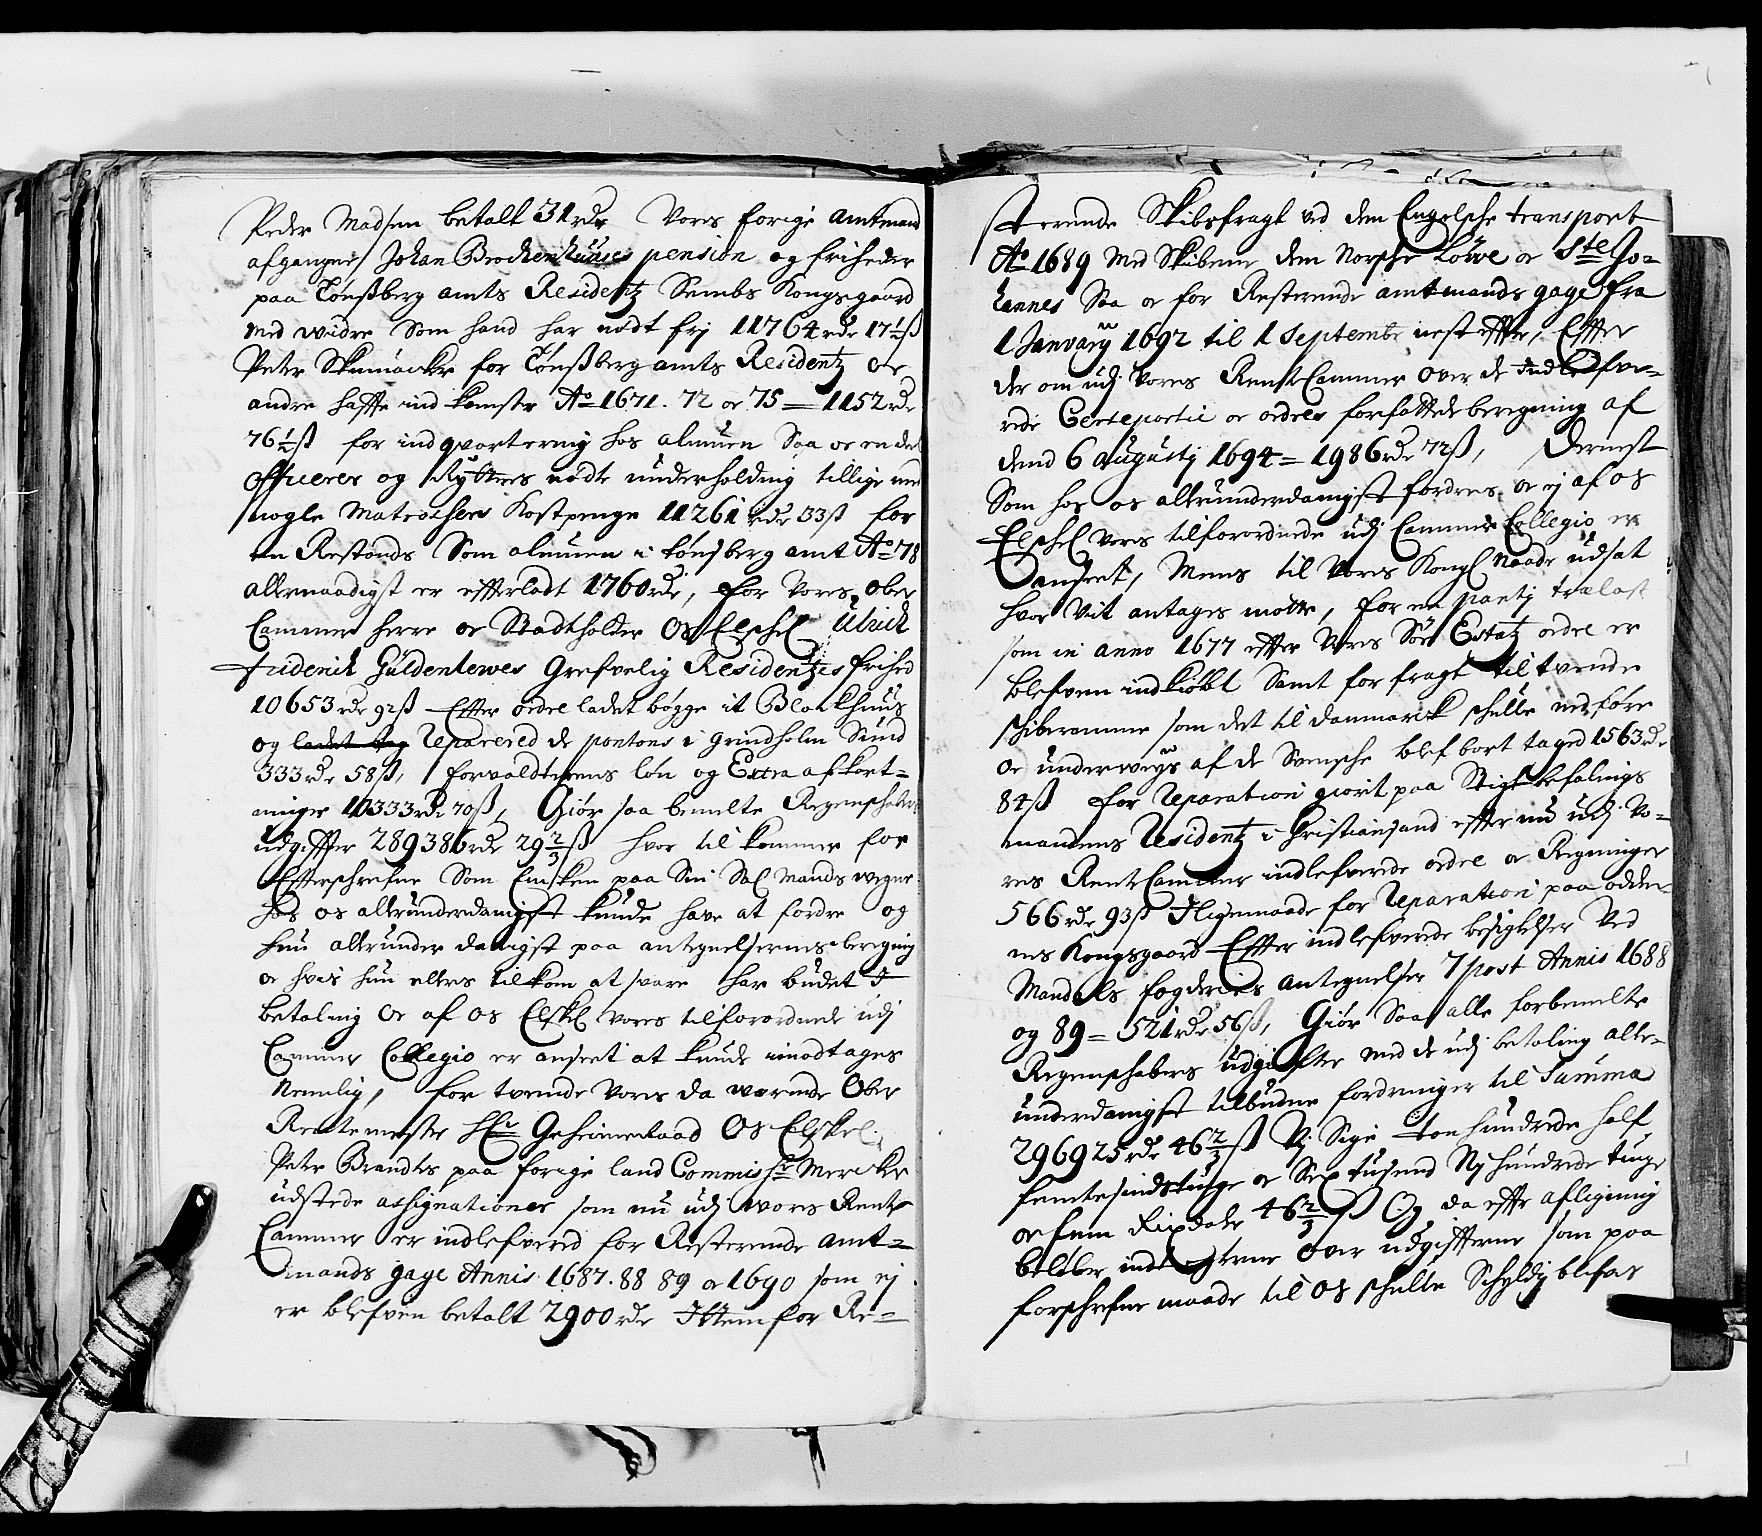 Peder Madsen betalt 31 rdr Vores forige Amtmand
afgangne Johan Brockenhuuses pension og friheder
paa Tønsberg amts Residentz Sembs Kongsgaard
med widre Som hand har nødt frj 11764 rdr 17½ ß
Peter Skumacker for Tønsberg amts Residentz oc
andre haffte ind komster Ao 1671. 72 oc 75 = 1152 rdr
76½ ß for indqvartering hos almuen Saa oc en deel
officerer og Rytters nødte underholding tillige med
nogle Matroskers Kostpenge 11261 rdr 33 ß for
en Restands Som almuen i tønsberg amt Ao 78
allernaadigst er efterladt 1760 rdr, for Vores ober
Cammer Herre oc Stadtholder Os Elskel Ulrich
friderich Güldenlewes Grefvelig Residentzes frihed
10653 rdr 92 ß Effter ordre ladet bøgge it Blockhuus
og ladet Reparered de pontons i Grindholm Sund
333 rdr 58 ß, forvalterens løn og Extra afkort=
ninger 10333 rdr 70 ß, Giør saa bemelte Regenskabers
udgiffter 289386 rdr 29⅔ ß hvor til kommer for
Efterschrefne Som Encken paa Sin Sal Mands wegne
hos os allerunderdanigst kunde have at fordre og
hun allerunder danigst paa antegnelsernes beregning
oc hvis hun ellers tilkom at svare har budet I
betaling oc af os Elskel vores tilforordnede udj
Cammer Collegio er anseet at kunde imodtages
Nemlig, for tvende Vores da werende Ober
Rentemester Hr Geheimeraad Os Elskel.
Peter Brandts paa forrige land Commissr Mercker
udstede assignationer som nu udj Wores Rente
Cammer er indlefvered for Resterende Amt=
mands gage Annis 1687. 88 89 oc 1690 som ej
er blefven betalt 2900 rdr Ittem for Re=
sterende Skibsfragt ved den Engelsche transport
Ao 1689 Med Skibene den Norsche Löwe oc Ste Jo=
hannes Saa oc for Resterende amtmands gage fra
1 January 1692 til 1 Septembr nest effter, Effter
der om udj Vores RenteCammer over de Indlefve=
rede Certepartie oc ordrer forfattede beregning af
dend 6 augusty 1694 = 1986 rdr 72 ß, Dernest
Som hos os allerunderdanigst fordres oc ej af os
Elschel vores tilforordnede udj Cammer Collegio er
anseet, Mens til Vores Kongl Naade udsat
hvor Vit antages motte, for en partj trælast
som in anno 1677 effter Vores Søe Estatz ordre er
blefven indkiøbt Samt for fragt til tvende
schibsromme som det til Danmarck schulle udføre
oc underweys af de Svensche blef bort taged 1563 rdr
84 ß for Reparation giort paa Stigtbefalings
mandens Residentz i Christiansand effter nu udj Vo=
res RenteCammer indlefverede ordre oc Regninger
566 rdr 93 ß Iligemaade for Reparation paa odder=
nes Kongsgaard Effter indlefverede besigtelser Ved
Mandals fogderies antegnelser 7 post Annis 1688
og 89 = 521 rdr 56 ß, Giør Saa alle forbemelte
Regenschabers udgiffter med de udj betaling aller=
underdanigst tilbudne fordringer til Summa
296925 rdr 46⅔ ß Nj Sige Toehundrede half
femtesindstiuge oc Sex tusend Nj hundrede tiuge
oc fem Rixdaler 46⅔ ß Og da effter afligning
beløber indtegterne over udgiffterne som paa
forschrefne maade til os schulle Schyldig blifve